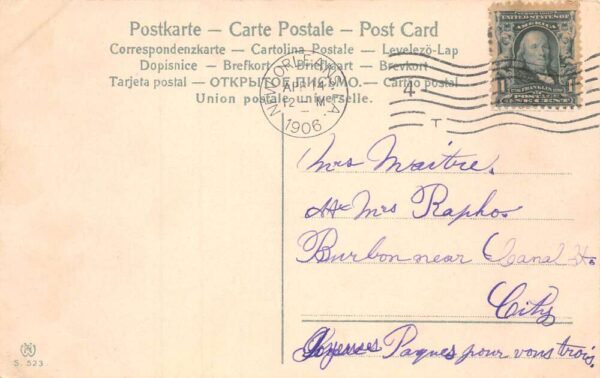 Postkarte — Carte Postale — Post Card
Correspondenzkarte — Cartolina Postale — Levelező-Lap
Dopisnice — Brefkort — Briefkaart — Brevkort
Tarjeta postal — ОТКРЫТОЕ ПИСЬМО. — Cartão postal
Union postale universelle.
NEW ORLEANS, LA.
APR 14
12 - M
1906
4
T
UNITED STATES OF
AMERICA
1
FRANKLIN
POSTAGE
ONE CENT
Mrs Maitre.
At Mrs Raphos
Burbon near Canal St.
City
Joyeuses Paques pour vous trois.
S. 523